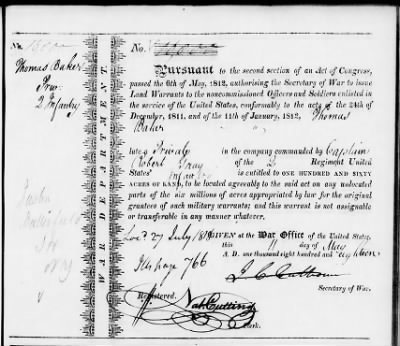 No.
No.
Thomas Baker
Priv
2 Infantry
WAR DEPARTMENT.
Pursuant to the second section of an Act of Congress,
passed the 6th of May, 1812, authorising the Secretary of War to issue
Land Warrants to the noncommissioned Officers and Soldiers enlisted in
the service of the United States, conformably to the acts of the 24th of
December, 1811, and of the 11th of January, 1812, Thomas
Baker
late a Private in the company commanded by Captain
Robert Gray of the 2 Regiment United
States' Infantry is entitled to ONE HUNDRED AND SIXTY
ACRES OF LAND, to be located agreeably to the said act on any unlocated
parts of the six millions of acres appropriated by law for the original
grantees of such military warrants; and this warrant is not assignable
or transferable in any manner whatever.
Loc'd 27 July 1819 GIVEN at the War Office of the United States,
this 11 day of May
A. D. one thousand eight hundred and eighteen
page 766
J. C. Calhoun
Secretary of War.
Registered.
Nat. Cutting
Clerk.